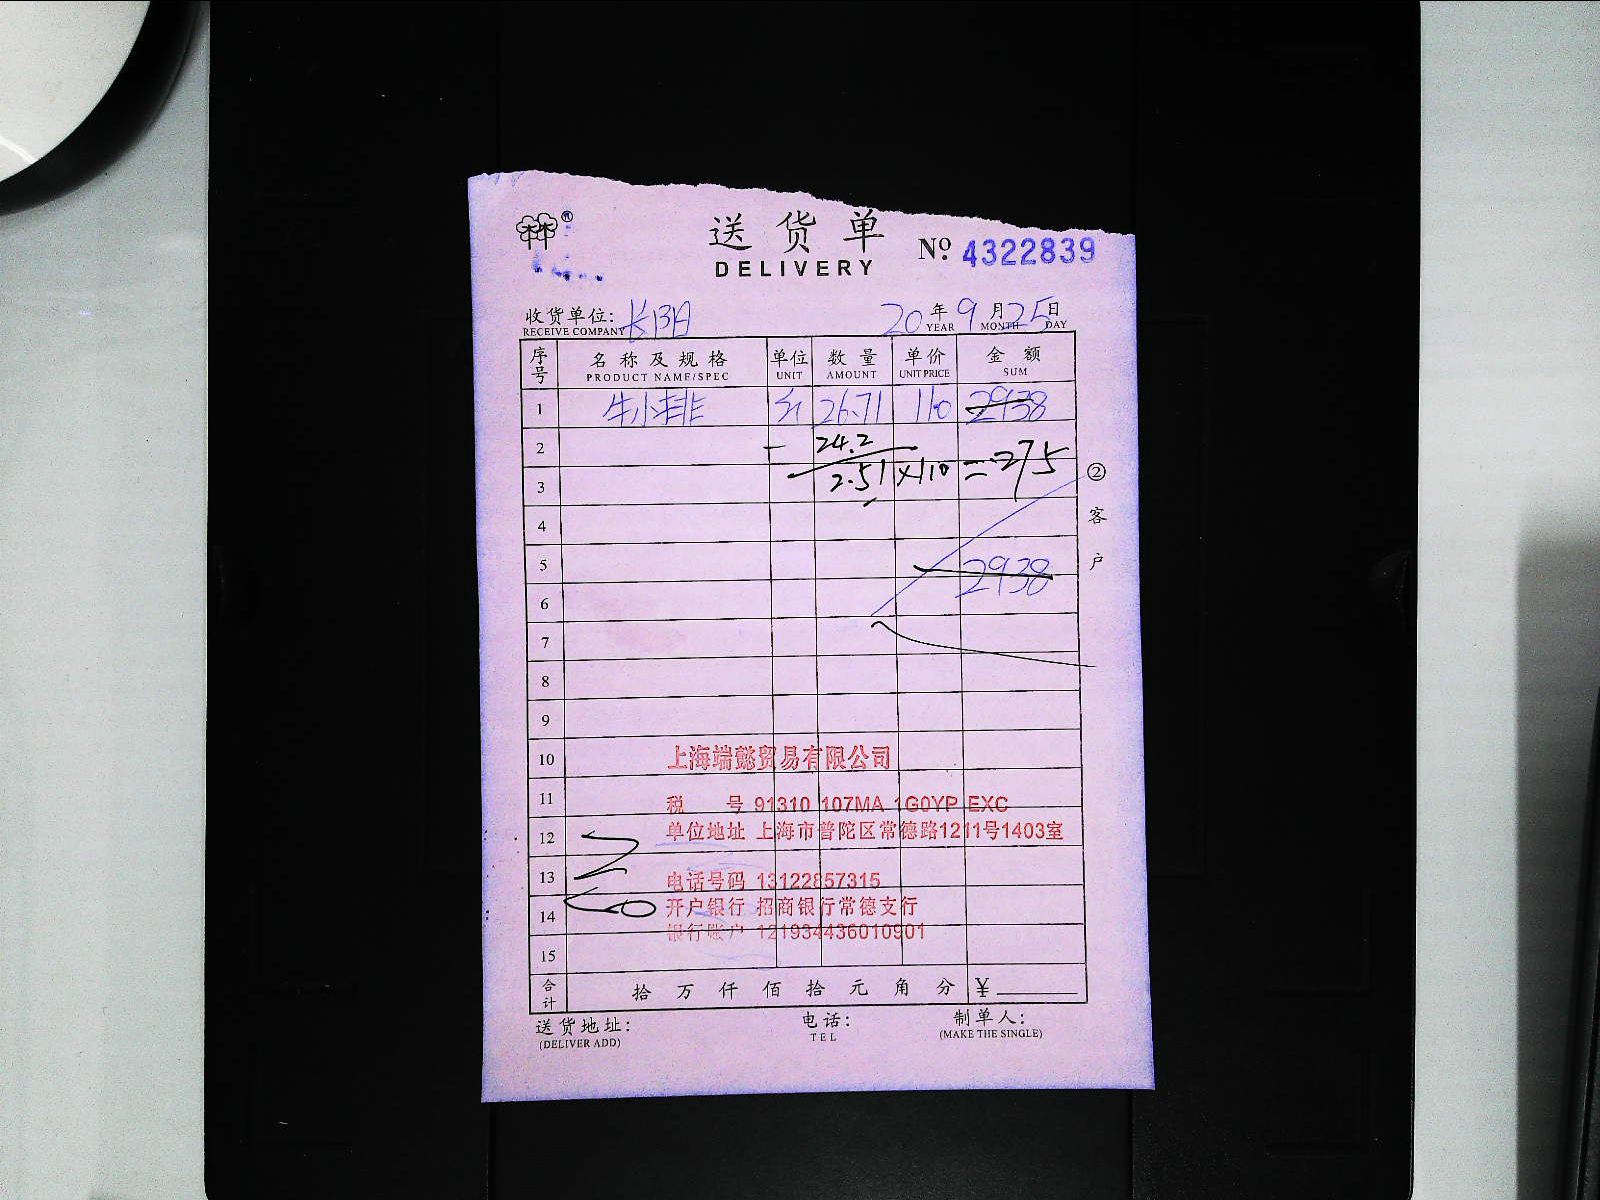 送货单
DELIVERY
№ 4322839
收货单位: 长阳 20年9月25日
RECEIVE COMPANY YEAR MONTH DAY
序号 名称及规格 单位 数量 单价 金额
PRODUCT NAME/SPEC UNIT AMOUNT UNIT PRICE SUM
1 牛小排 斤 26.71 110 2938
2 - 24.2
3 2.51 ×110 = 275
4
5 2938
6
7
8
9
10 上海端懿贸易有限公司
11 税 号 91310 107MA 1G0YP EXC
12 单位地址 上海市普陀区常德路1211号1403室
13 电话号码 13122857315
14 开户银行 招商银行常德支行
银行账户 121934436010901
15
合计 拾 万 仟 佰 拾 元 角 分 ¥
送货地址: 电话: 制单人:
(DELIVER ADD) TEL (MAKE THE SINGLE)
②客户